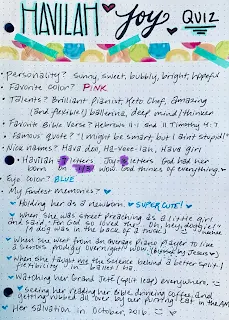 HAVILAH Joy QUIZ
• Personality? Sunny, sweet, bubbly, bright, hopeful
• Favorite color? PINK
• Talents? Brilliant pianist, Keto Chef, amazing
(and flexible!) ballerina, deep mind/thinker
• Favorite Bible Verse? Hebrews 11:1 and II Timothy 4:7
• Famous quote? "I might be smart, but I ain't stupid!"
• Nick names? Hava deo, Ha-vee-iah, Hava girl
• Havilah 7 letters Joy 3 letters God had her
born on wow God thinks of everything
• Eye color? BLUE
• My fondest memories?
Holding her as a newborn. SUPER CUTE!
When she was sweet preaching as a little girl
and said "For God so loved the.. Oh, hey, doggie!"
(A dog was in the back of a truck)
When she went from an average piano player to like
a Steinos prodigy overnight! (Blessed by Jesus)
When she taught me the science behind a better split/
flexibility in ballet/
Watching her Grand Jeté (split leap) everywhere.
Seeing her reading her bible, drinking coffee, and
getting rubbed all over by our purring cat in the AM
Her salvation in October, 2016.